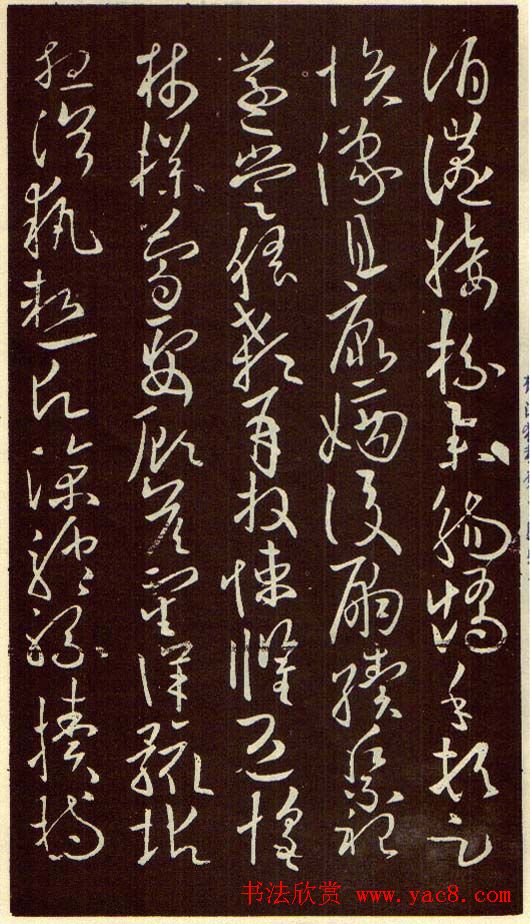 酒讌接杯舉觴矯手頓足
悅豫且康嫡後嗣續祭祀
蒸嘗稽顙再拜悚懼恐惶
牋牒簡要顧答審詳骸垢
想浴執熱願涼驢騾犢特
书法欣赏 www.yac8.com